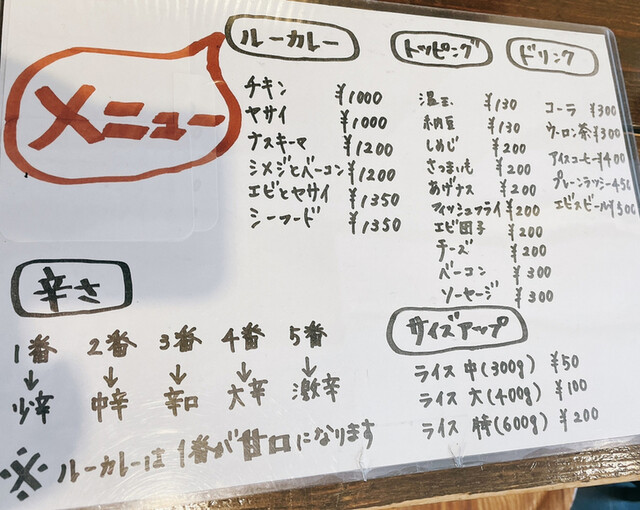 メニュー
ルーカレー
チキン ¥1000
ヤサイ ¥1000
ナスキーマ ¥1200
シメジとベーコン ¥1200
エビとヤサイ ¥1350
シーフード ¥1350
トッピング
温玉 ¥130
納豆 ¥130
しめじ ¥200
さつまいも ¥200
あげナス ¥200
フィッシュフライ ¥200
エビ団子 ¥200
チーズ ¥200
ベーコン ¥300
ソーセージ ¥300
ドリンク
コーラ ¥300
ウーロン茶 ¥300
アイスコーヒー ¥400
プレーンラッシー 450
エビスビール ¥500
辛さ
1番 2番 3番 4番 5番
↓ ↓ ↓ ↓ ↓
少辛 中辛 辛口 大辛 激辛
※ ルーカレーは 1番が甘口になります
サイズアップ
ライス 中(300g) ¥50
ライス 大(400g) ¥100
ライス 特(600g) ¥200